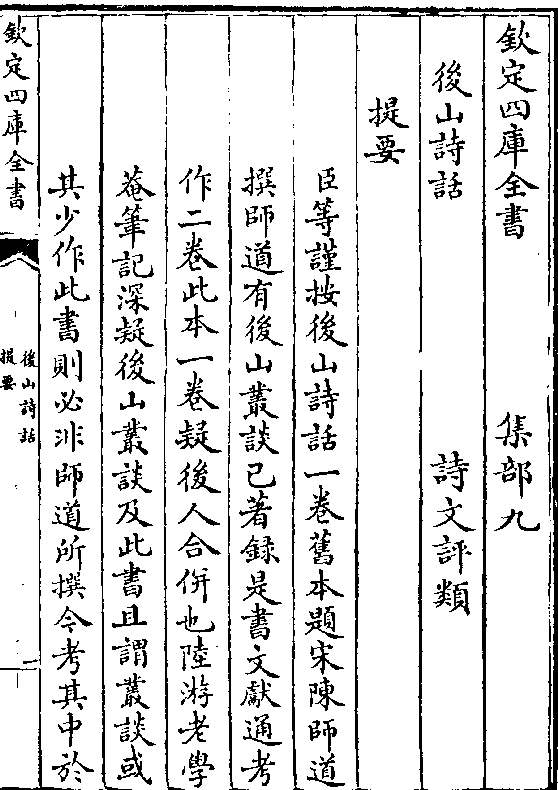 欽定四庫全書 集部九
後山詩話 詩文評類
提要
臣等謹按後山詩話一卷舊本題宋陳師道
撰師道有後山叢談已著録是書文獻通考
作二卷此本一卷疑後人合併也陸游老學
菴筆記深疑後山叢談及此書且謂叢談或
其少作此書則必非師道所撰今考其中於
欽定四庫全書
後山詩話
提要
一